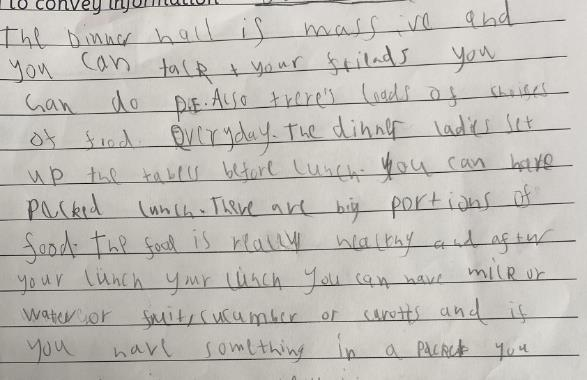 to convey information
The Dinner hall is massive and
you can talk + your friends you
can do P.E. Also there's loads of choises
of food. Everyday. The dinner ladies set
up the tabels before lunch. You can have
packed lunch. There are big portions of
food. The food is really healthy and after
your lunch your lunch you can have milk or
water or fruit, cucumber or carotts and if
you have something in a packet you